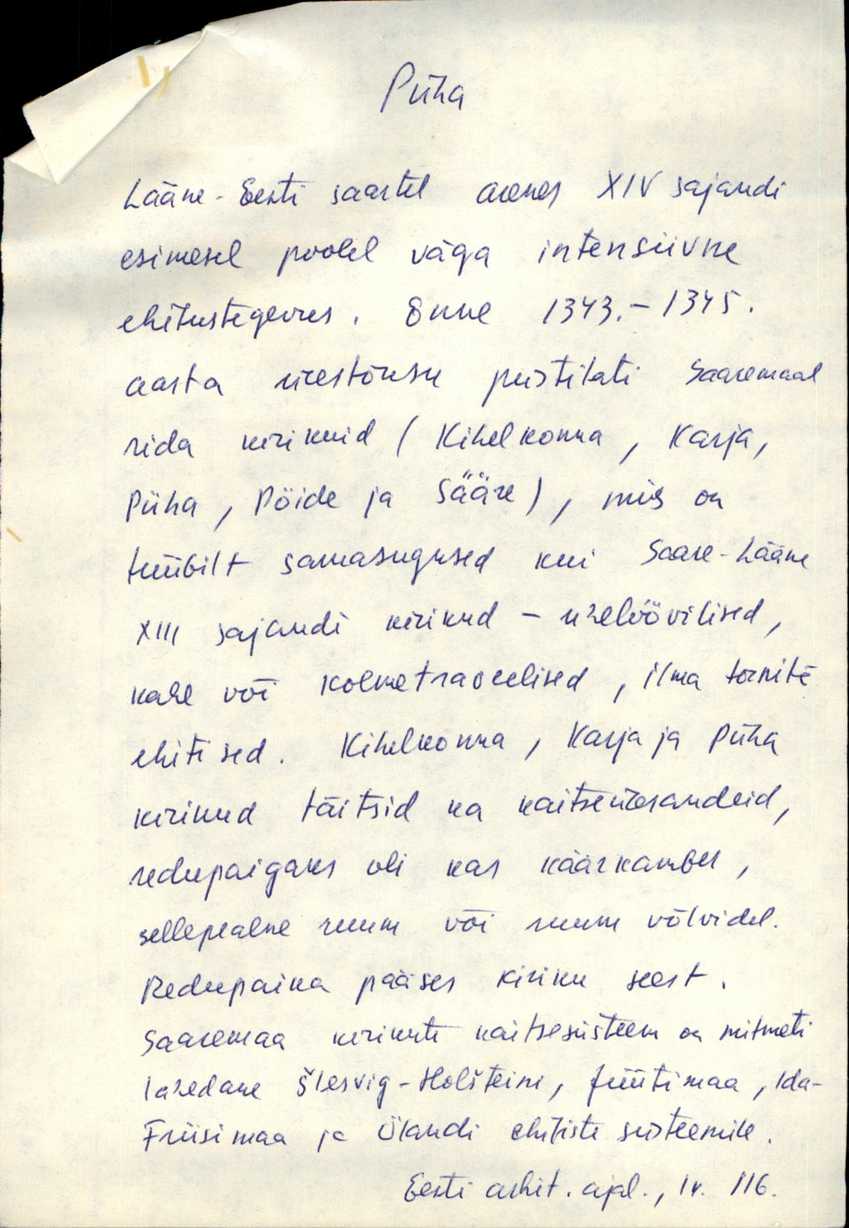 Püha
Lääne-Eesti saartel arenes XIV sajandi
esimesel poolel väga intensiivne
ehitustegevus. Enne 1343.-1345.
aasta ülestõusu püstitati Saaremaal
rida kirikuid (Kihelkonna, Karja,
Püha, Pöide ja Sääre), mis on
tüübilt samasugused kui Saare-Lääne
XIII sajandi kirikud - ühelöövilised,
kahe või kolmetraveelised, ilma tornita
ehitised. Kihelkonna, Karja ja Püha
kirikud täitsid ka kaitseülesandeid,
redupaigaks oli kas käärkamber,
sellepealne ruum või ruum võlvidel.
Redupaika pääses kiriku seest.
Saaremaa kirikute kaitsesüsteem on mitmeti
lähedane Šlesvig-Holšteini, Jüütimaa, Ida-
Friisimaa ja Ölandi ehitiste süsteemile.
Eesti arhit. ajal., lk. 116.